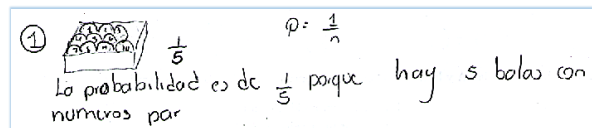 ① P = 1/n
1/5
La probabilidad es de 1/5 porque hay 5 bolas con
numeros par